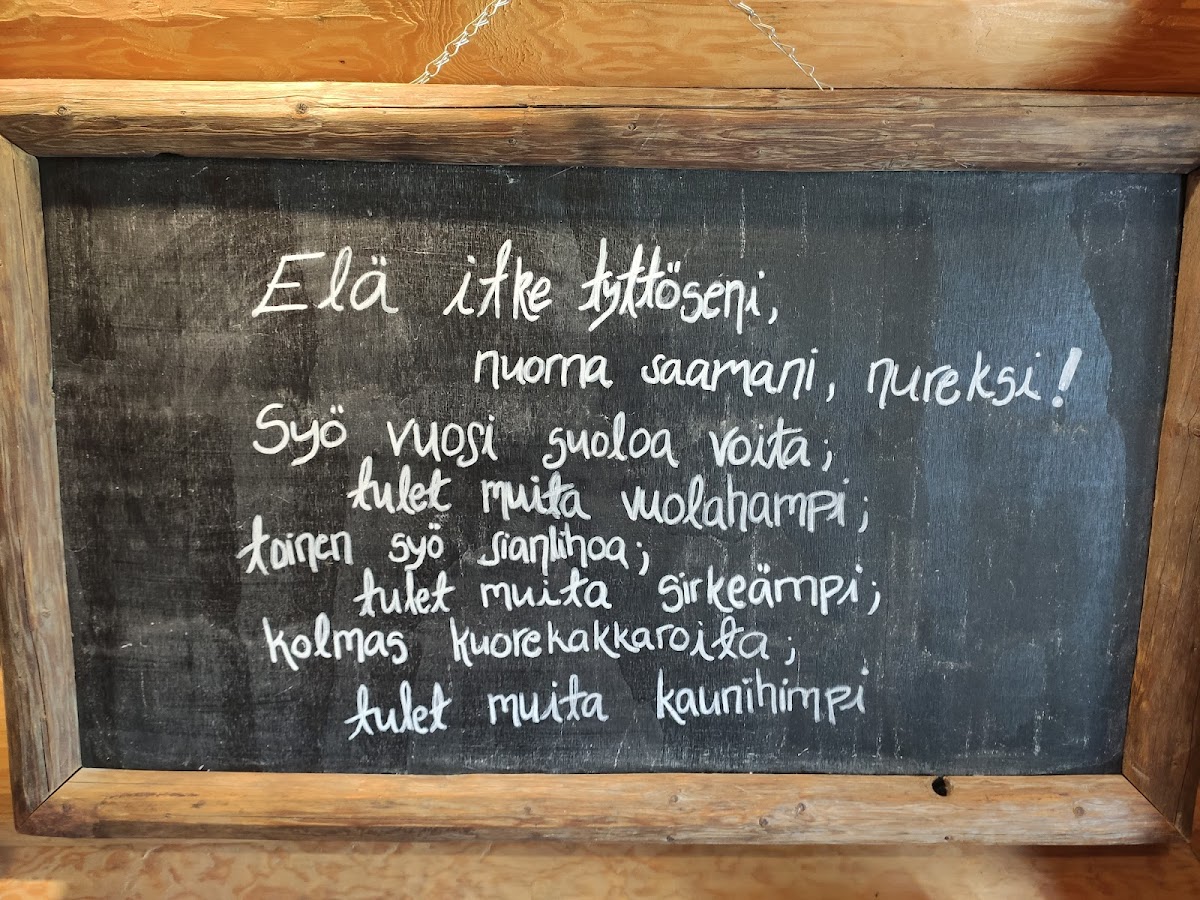 Elä itke tyttöseni,
nuorna saamani, nureksi!
Syö vuosi suoloa voita;
tulet muita vuolahampi;
toinen syö sianlihoa;
tulet muita sirkeämpi;
kolmas kuorekakkaroita;
tulet muita kaunihimpi